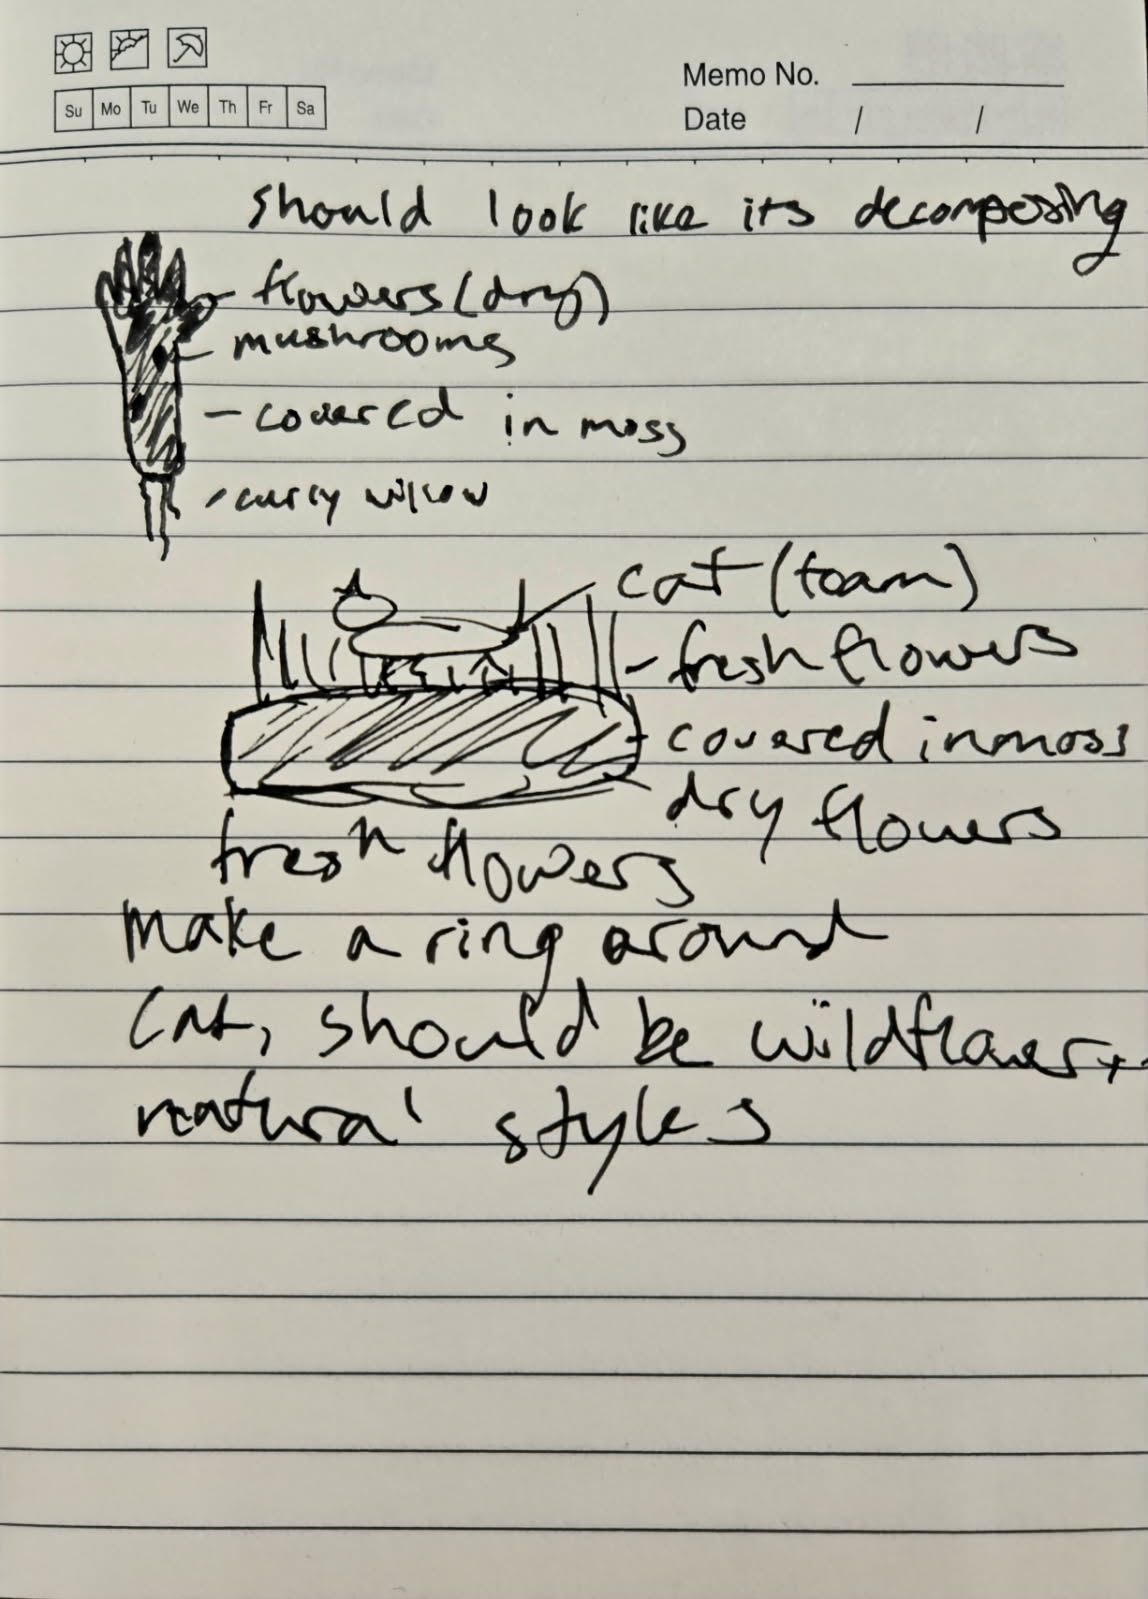 Su Mo Tu We Th Fr Sa
Memo No.
Date / /
should look like its decomposing
- flowers (dry)
- mushrooms
- covered in moss
- curly willow
cat (foam)
- fresh flowers
- covered in moss
dry flowers
fresh flowers
make a ring around
cat, should be wildflower +
natural styles